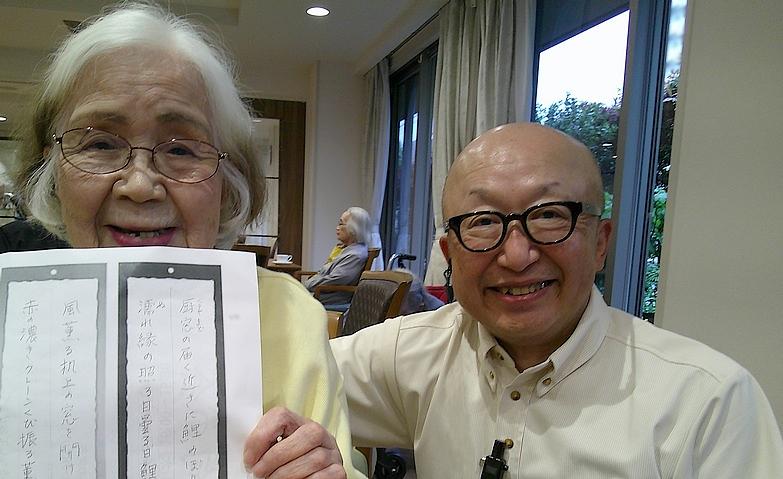 厨窓の届く近さに鯉のぼり
濡れ縁の照る日曇る日鯉
風薫る机上の窓を開け
赤の濃きクレーンくび振る薫